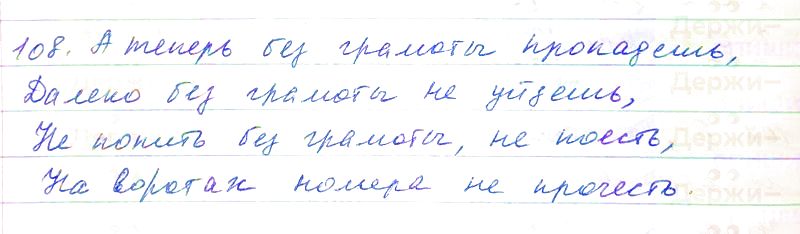 108. А теперь без грамоты пропадешь,
Далеко без грамоты не уйдешь,
Не попить без грамоты, не поесть,
На воротах номера не прочесть.
Держи-
Держи-
Держи-
Держи-